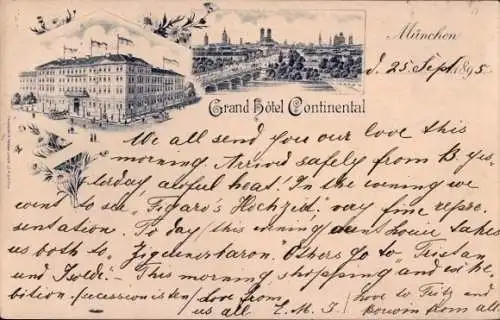 München
d. 25 Sept. 1895.
Grand Hôtel Continental
We all send you our love this
morning. Arrived safely from B. yes-
terday, awful heat! In the evening we
went to see "Figaro's Hochzeit", very fine repre-
sentation. To day / this evening / aunt Louie takes
us both to "Zigeunerbaron". Others go to "Tristan
und Isolde". - This morning shopping and exhi-
bition. /
love from
us all
E. M. I.
love to Fritz and
from all